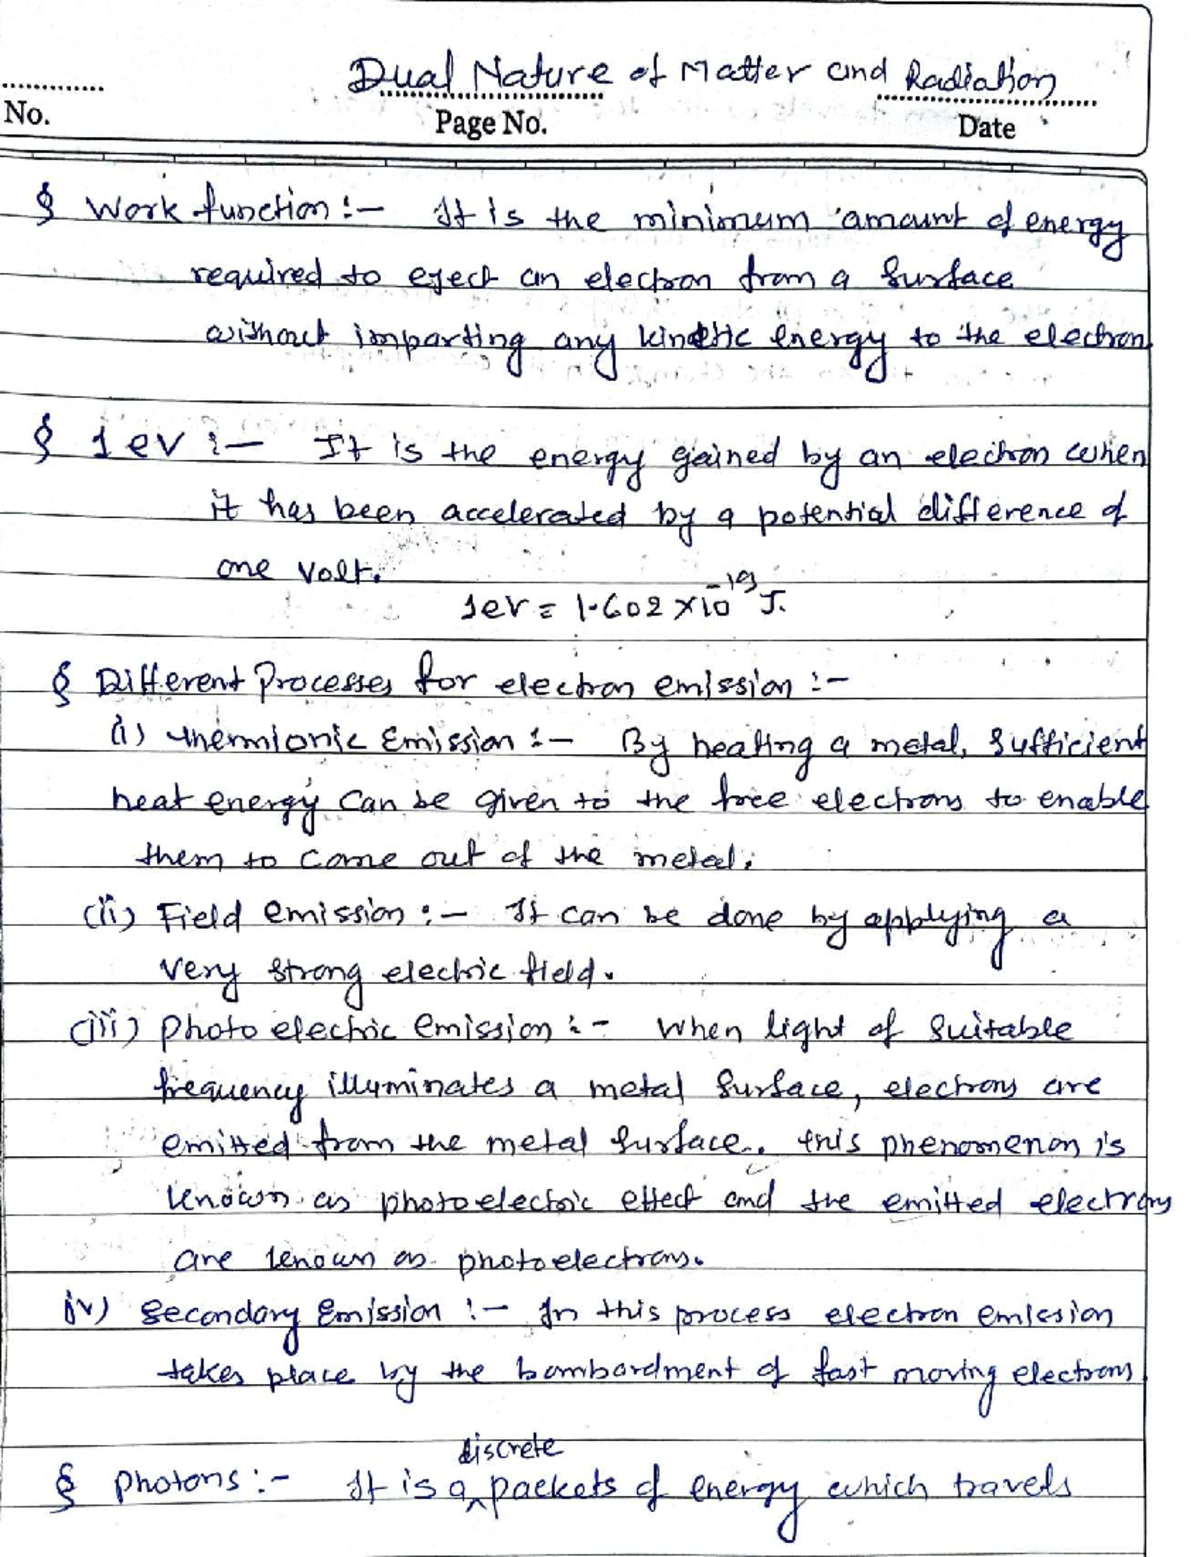 Dual Nature of Matter and Radiation
No. Page No. Date
§ Work function :- It is the minimum amount of energy
required to eject an electron from a surface
without imparting any kinetic energy to the electron
§ 1 ev :- It is the energy gained by an electron when
it has been accelerated by a potential difference of
one volt.
1ev = 1.602 × 10⁻¹⁹ J.
§ Different Processes for electron emission :-
(i) thermionic Emission :- By heating a metal, Sufficient
heat energy can be given to the free electrons to enable
them to come out of the metal.
(ii) Field emission :- It can be done by applying a
very strong electric field.
(iii) photo electric emission :- when light of suitable
frequency illuminates a metal surface, electrons are
emitted from the metal surface. this phenomenon is
known as photoelectric effect and the emitted electrons
are known as photoelectrons.
iv) Secondary Emission :- In this process electron emission
takes place by the bombardment of fast moving electrons
discrete
§ photons :- It is a ^ packets of energy which travels